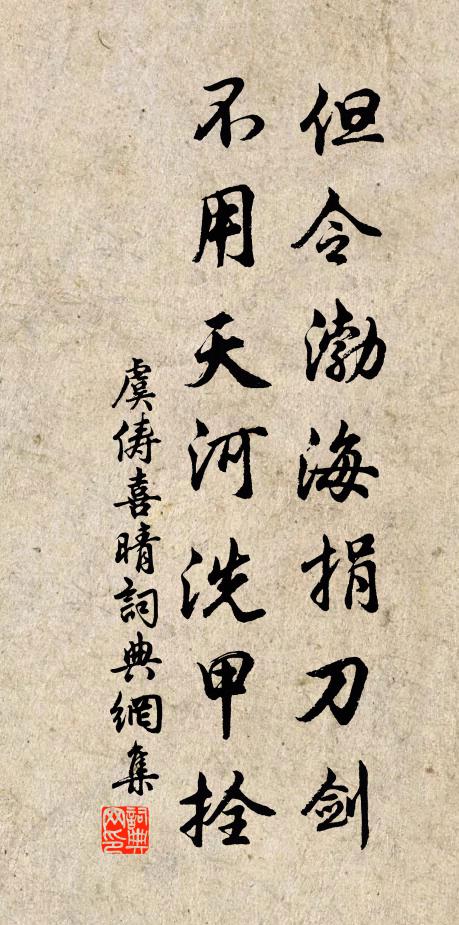 但令渤海捐刀劍
不用天河洗甲拴
虞儔喜晴詞典網集
詞典网印